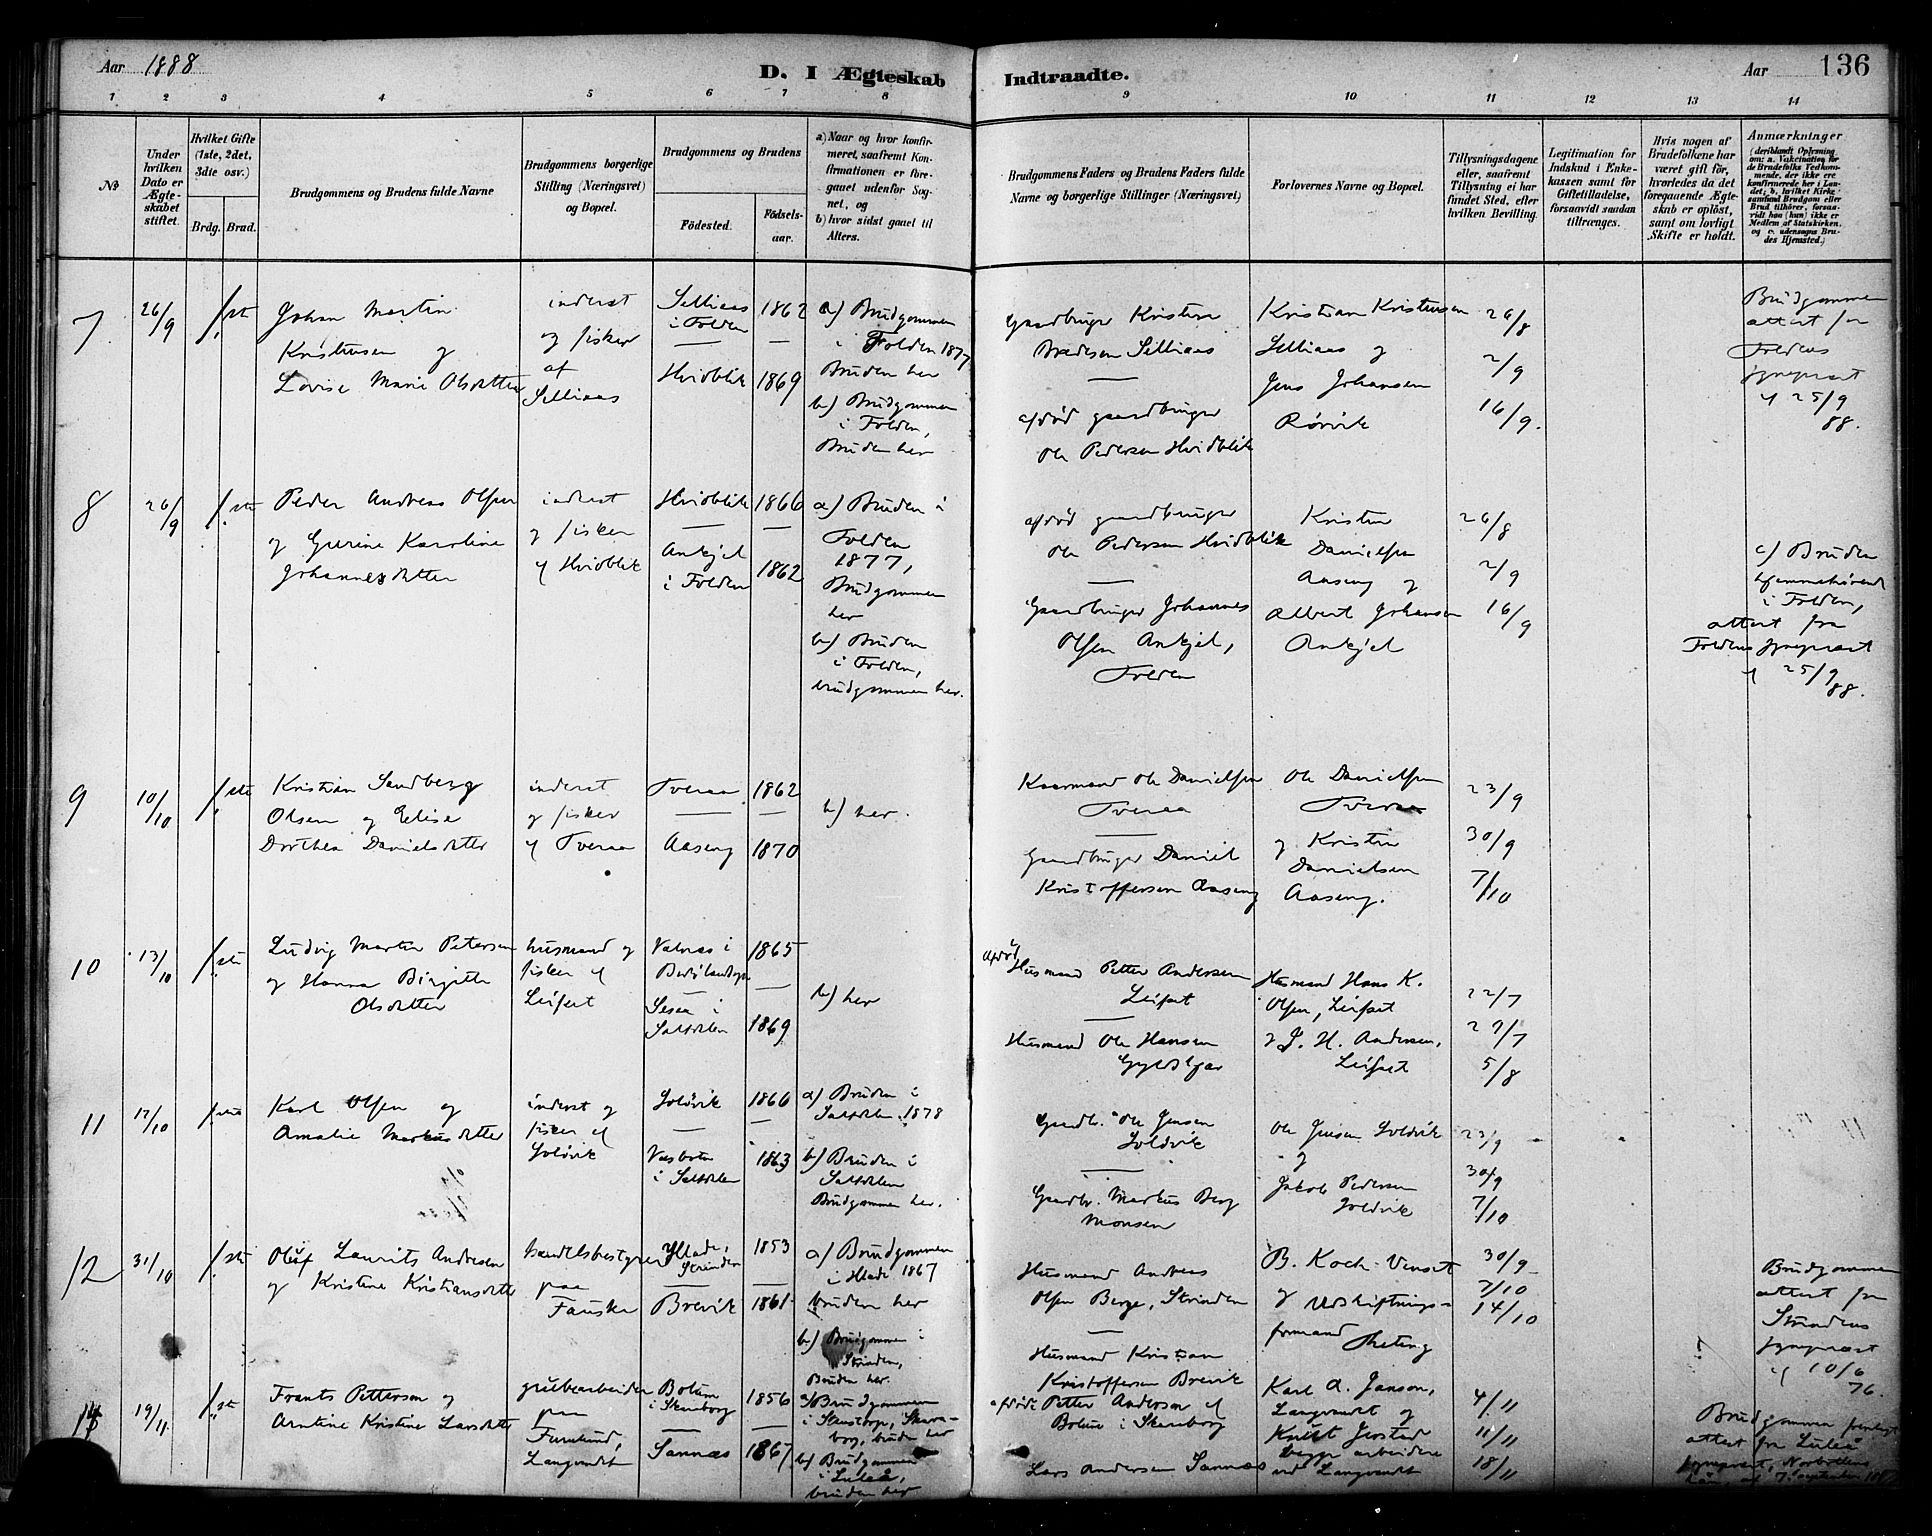 Aar 1888
D. I Ægteskab
Indtraadte.
Aar 136
1 2 3 4 5 6 7 8 9 10 11 12 13 14
№
Under hvilken Dato er Ægteskabet stiftet.
Hvilket Gifte (1ste, 2det, 3die osv.)
Brdg. Brud.
Brudgommens og Brudens fulde Navne
Brudgommens borgerlige Stilling (Næringsvei) og Bopæl.
Brudgommens og Brudens
Fødested.
Fødsels-aar.
a) Naar og hvor konfirmeret, saafremt Konfirmationen er foregaaet udenfor Sognet, og
b) hvor sidst gaaet til Alters.
Brudgommens Faders og Brudens Faders fulde Navne og borgerlige Stillinger (Næringsvei)
Forlovernes Navne og Bopæl.
Tillysningsdagene eller, saafremt Tillysning ei har fundet Sted, efter hvilken Bevilling.
Legitimation for Indskud i Enkekassen samt for Giftetilladelse, forsaavidt saadan tiltrænges.
Hvis nogen af Brudefolkene har været gift før, hvorledes da det foregaaende Ægteskab er opløst, samt om lovligt Skifte er holdt.
Anmærkninger (deriblandt Oplysning om: a. Vakcination for de Brudefolks Vedkommende, der ikke ere konfirmerede her i Landet; b. hvilket Kirkesamfund Brudgom eller Brud tilhører, forsaavidt han (hun) ikke er Medlem af Statskirken, og c. udensogns Brudes Hjemsted.)
7
26/9
Johan Martin
Kristensen og
Lovise Marie Olsdatter
inderst
og fisker
af
Selliaas
Selliaas
i Folden
—
Hvidblik
1862
—
1869
a) Brudgommen
i Folden 1877
Bruden her
b) Brudgommen
i Folden,
Bruden her
Gaardbruger Kristen
Selliaas
—
afdød gaardbruger
Ole Pedersen Hvidblik
Kristian Kristensen
Selliaas og
Jens Johansen
Rørvik
26/8
2/9
16/9.
Brudgommen
attest fra
Foldens
sogneprest
af 25/9
88.
8
26/9
Peder Andreas Olsen
og Gurine Karoline
Johannesdatter
inderst
og fisker
af Hvidblik
Hvidblik
—
Ankjel
i Folden
1866
—
1862
a) Bruden i
Folden
1877,
Brudgommen
her
b) Bruden
i Folden,
brudgommen her.
afdød gaardbruger
Ole Pedersen Hvidblik
—
Gaardbruger Johannes
Olsen Ankjel,
Folden
Kristen
Danielsen
Aaseng og
Albert Johansen
Ankjel
26/8
2/9
16/9
c) Bruden
hjemmehørende
i Folden,
attest fra
Foldens sogneprest
af 25/9
88.
9
10/10
Kristian Sandberg
Olsen og Elise
Dorthea Danielsdatter
inderst
og fisker
af Tveraa
Tveraa
—
Aaseng
1862
—
1870
b) her.
Kaarmand Ole Danielsen
Tveraa
—
Gaardbruger Daniel
Kristoffersen Aaseng
Ole Danielsen
Tveraa
og Kristen
Danielsen
Aaseng.
23/9
30/9
7/10
10
13/10
Ludvig Martin Petersen
og Hanna Birgitte
Olsdatter
husmand og
fisker af
Leifset
Valnes i
—
i
Saltdalen
1865
—
1869
b) her
afdød
Husmand Petter Andersen
Leifset
—
Husmand Ole Hansen
Husmand Hans K.
Olsen, Leifset
og J. H. Andersen,
Leifset
22/7
29/7
5/8
11
17/10
Karl Olsen og
Amalie Markusdatter
inderst og
fisker af
Loldvik
Loldvik
—
Vasbotn
i Saltdalen
1866
—
1863
a) Bruden i
Saltdalen 1878
b) Bruden i
Saltdalen
Brudgommen her.
Gaardbr. Ole Jensen
Loldvik
—
Gaardbr. Markus Berg
Monsen
Ole Jensen Loldvik
og
Jakob Pedersen
Loldvik
23/9
30/9
7/10
12
31/10
Oluf Laurits Andresen
og Kristine Kristiansdatter
handelsbestyrer
paa
Fauske
Hlade,
Strinden
—
Brevik
1853
—
1861
a) Brudgommen
i Hlade 1867
bruden her
b) Brudgommen i
Strinden,
Bruden her.
Husmand Andreas
Olsen Berge, Strinden
—
Husmand Kristian
Kristoffersen Brevik
B. Koch-Venset
og Udskiftnings-
formand
30/9
7/10
14/10
Brudgommen
attest fra
Strindens
sogneprest
af 10/6
76.
13
19/11
Frants Petterson og
Arntine Kristine Larsdatter
grubearbeider
paa
Furulund,
Langvandt
Bolum
i Skaraborg
—
Sannæs
1856
—
1867
a) Brudgommen
i Skarstorp, Skara-
borg, bruden her
b) Brudgommen
i Luleå,
bruden her
afdøde Petter Anderson af
Bolum i Skaraborg
—
Lars Andersen Sannæs
Karl A. Janson,
Langvandt og
Knut Jerstad
begge arbeidere
ved Langvandt
4/11
11/11
18/11
Brudgommen
attest fra Luleå
sogneprest, Norbottens
Län, af 7. September